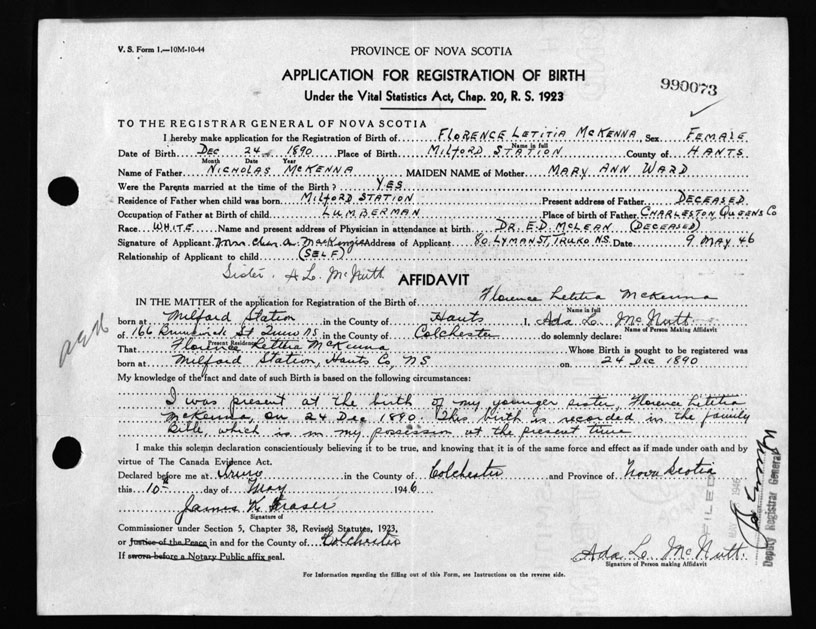 V. S. Form 1.—10M-10-44
PROVINCE OF NOVA SCOTIA
APPLICATION FOR REGISTRATION OF BIRTH
990073
Under the Vital Statistics Act, Chap. 20, R. S. 1923
TO THE REGISTRAR GENERAL OF NOVA SCOTIA
I hereby make application for the Registration of Birth of FLORENCE LETITIA McKENNA, Sex FEMALE
Name in full
Date of Birth DEC 24 1890 Place of Birth MILFORD STATION County of HANTS
Month Date Year
Name of Father NICHOLAS McKENNA MAIDEN NAME of Mother MARY ANN WARD
Were the Parents married at the time of the Birth? YES
Residence of Father when child was born MILFORD STATION Present address of Father DECEASED
Occupation of Father at Birth of child LUMBERMAN Place of birth of Father CHARLESTON QUEENS CO
Race WHITE Name and present address of Physician in attendance at birth DR. E.D. McLEAN (DECEASED)
Signature of Applicant Mrs. Chas. A. MacKenzie Address of Applicant 80 LYMAN ST, TRURO N.S. Date 9 MAY 46
Relationship of Applicant to child (SELF)
Sister. A L. McNutt
AFFIDAVIT
IN THE MATTER of the application for Registration of the Birth of Florence Letitia McKenna
Name in full
born at Milford Station in the County of Hants I, Ada L. McNutt
Name of Person Making Affidavit
of 166 Brunswick St Truro NS in the County of Colchester do solemnly declare:
Present Residence
That Florence Letitia McKenna Whose Birth is sought to be registered was
born at Milford Station, Hants Co, NS on 24 Dec 1890
My knowledge of the fact and date of such Birth is based on the following circumstances:
I was present at the birth of my younger sister, Florence Letitia
McKenna, on 24 Dec 1890. This birth is recorded in the family
Bible, which is in my possession at the present time
I make this solemn declaration conscientiously believing it to be true, and knowing that it is of the same force and effect as if made under oath and by
virtue of The Canada Evidence Act.
Declared before me at Truro in the County of Colchester and Province of Nova Scotia
this 10 day of May 1946
James K Fraser
Signature of
Commissioner under Section 5, Chapter 38, Revised Statutes, 1923,
or Justice of the Peace in and for the County of Colchester
If sworn before a Notary Public affix seal.
Ada L. McNutt
Signature of Person making Affidavit
For Information regarding the filling out of this Form, see Instructions on the reverse side.
FILED
1946
Deputy Registrar General